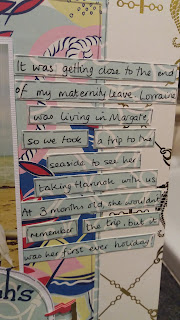 It was getting close to the end
of my maternity leave. Lorraine
was living in Margate,
so we took a trip to the
seaside to see her,
taking Hannah with us.
At 3 months old, she wouldn't
remember the trip, but it
was her first ever holiday!